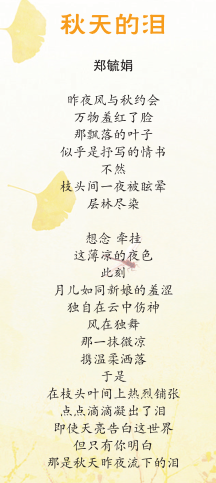 秋天的泪
郑毓娟
昨夜风与秋约会
万物羞红了脸
那飘落的叶子
似乎是抒写的情书
不然
枝头间一夜被眩晕
层林尽染
想念 牵挂
这薄凉的夜色
此刻
月儿如同新娘的羞涩
独自在云中伤神
风在独舞
那一抹微凉
携温柔洒落
于是
在枝头叶间上热烈铺张
点点滴滴凝出了泪
即使天亮告白这世界
但只有你明白
那是秋天昨夜流下的泪